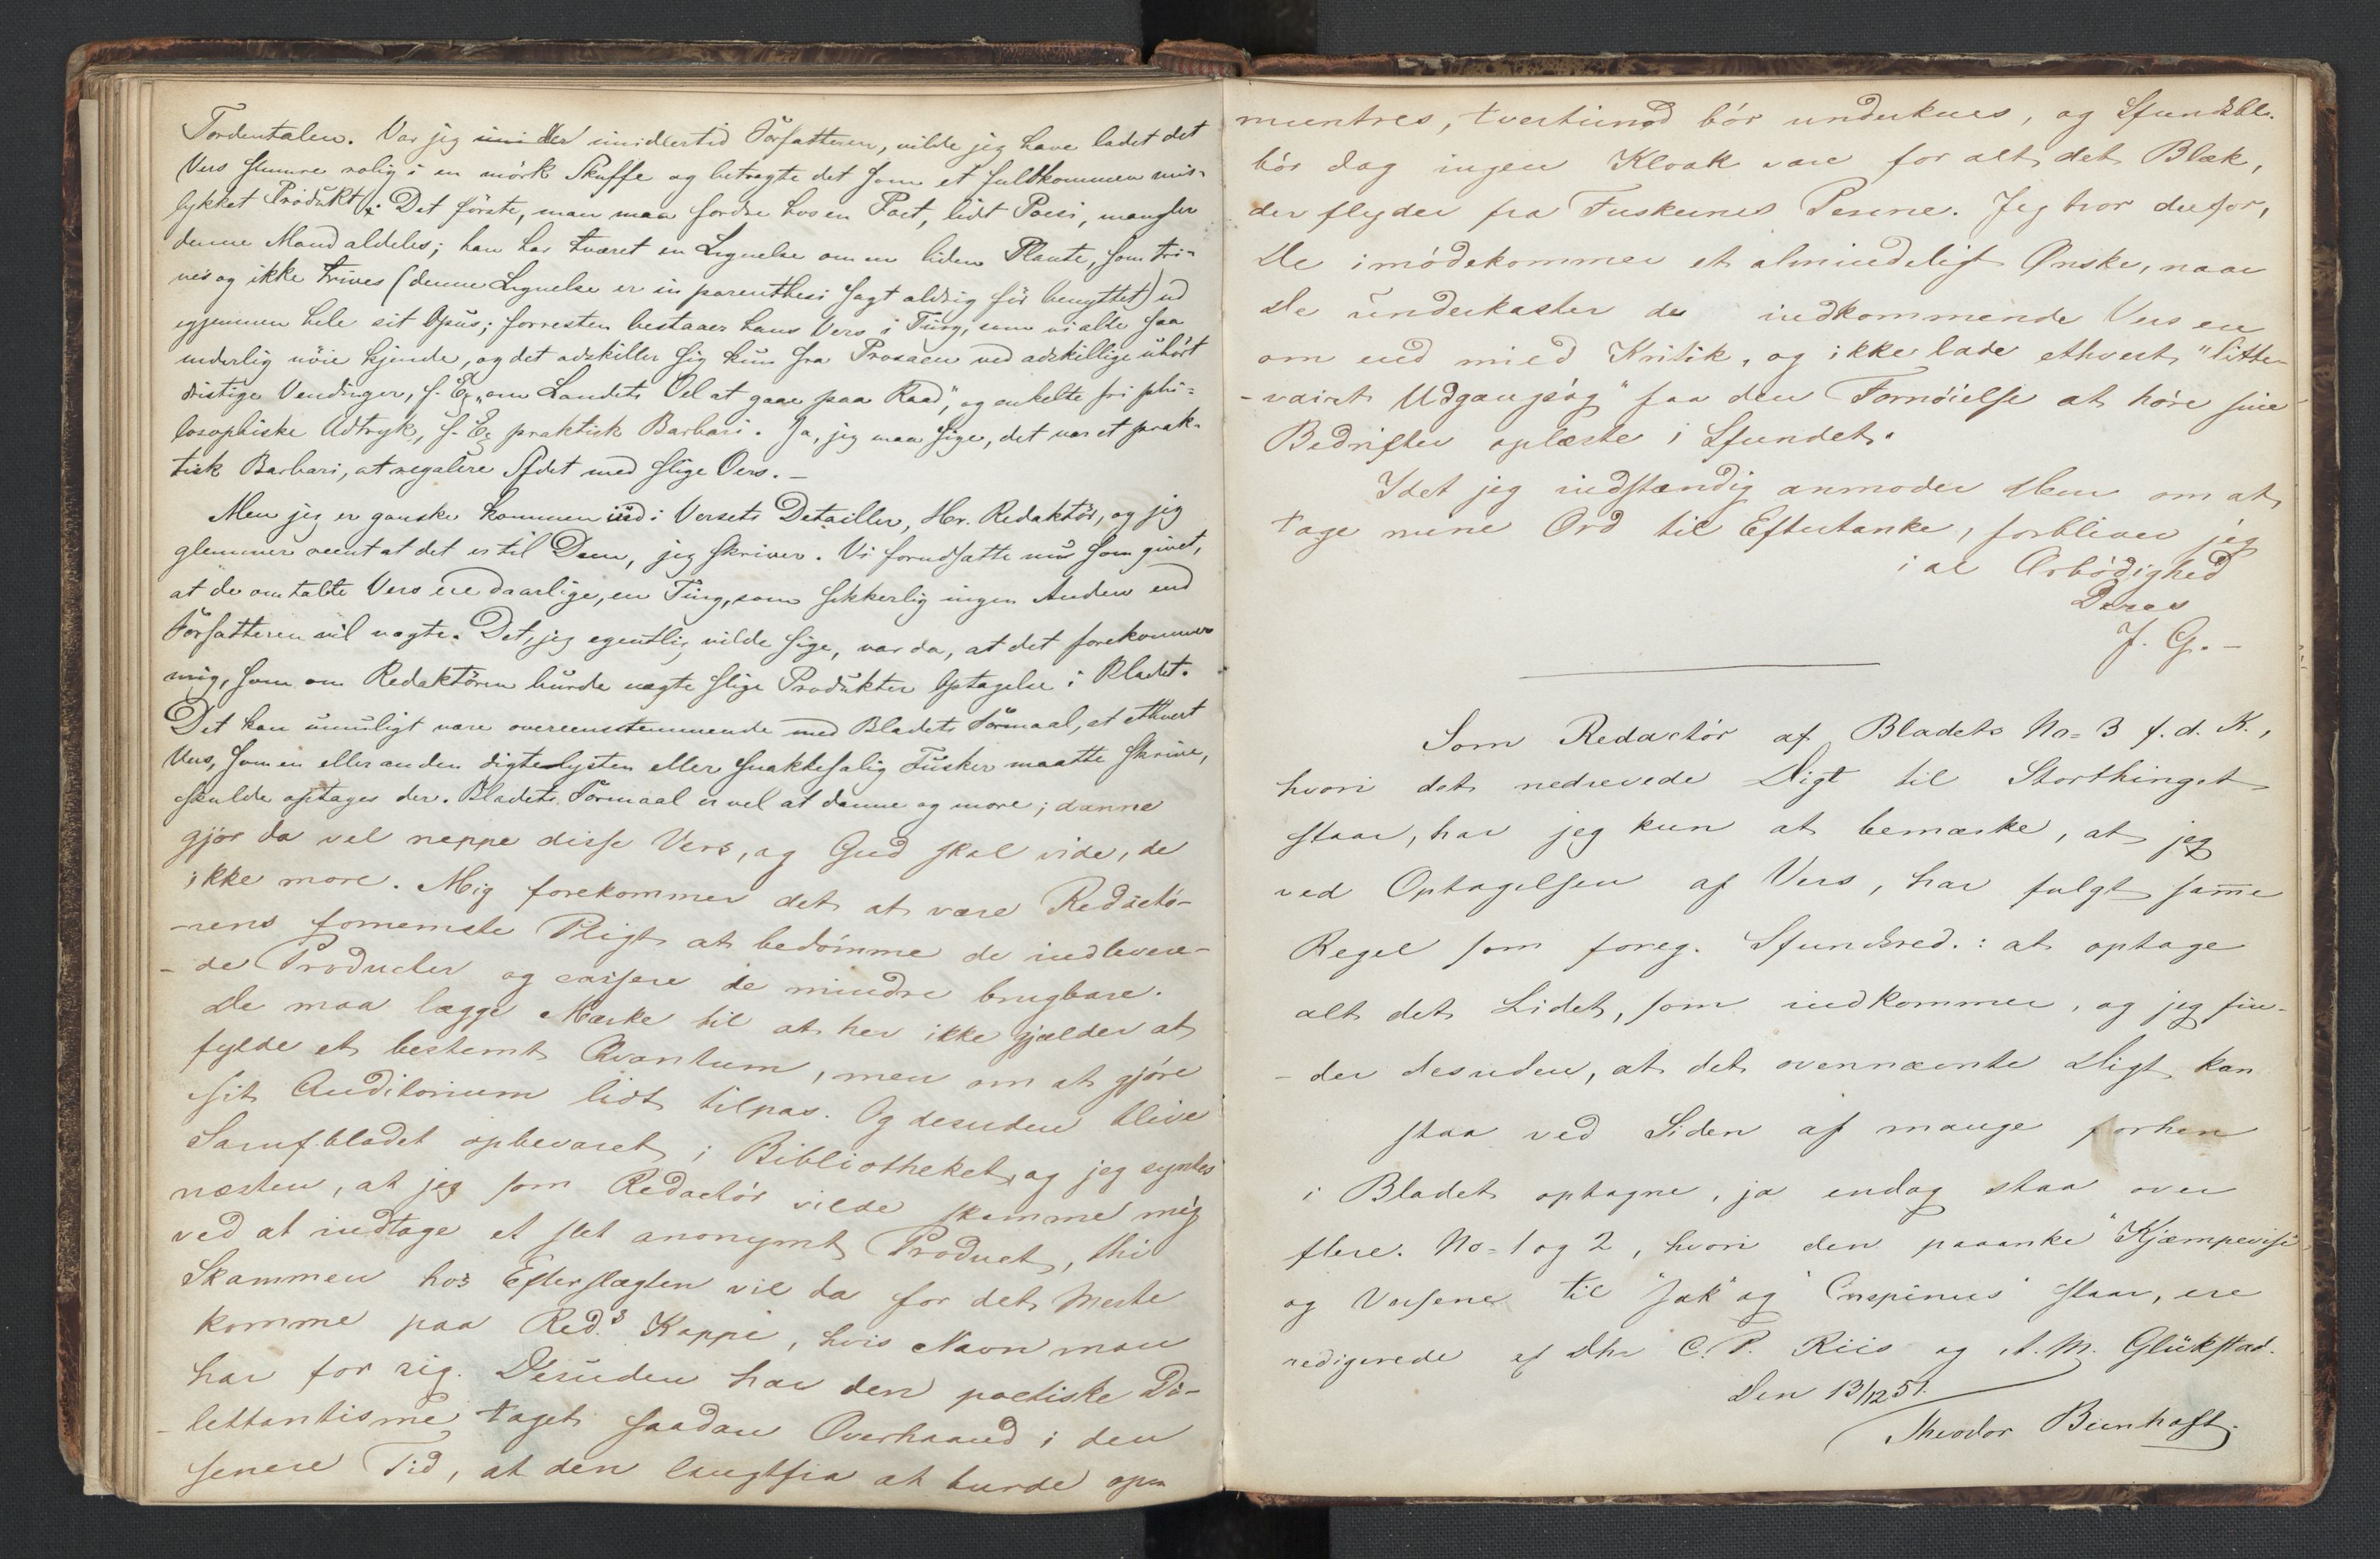 Tordentalen. Var jeg imidler imidlertid Forfatteren, vilde jeg have ladet det
Vers slumre rolig i en mörk Skuffe og betragte det som et fuldkommen mis-
lykket Produkt. Det förste, man maa fordre hos en Poet, lidt Poesi, mangler
denne Mand aldeles; han har tværet en Lignelse om en liden Plante, som tri-
ves og ikke trives (denne Lignelse er in parenthesi sagt aldrig för benyttet) ud
egjennem hele sit Opus; forresten bestaaer hans Vers i Ting, som vi alle saa
inderlig nöie kjende, og det adskiller sig kun fra Prosaen ved adskillige uhört
dristige Vendinger, f. Ex. "om Landets Vel at gaae paa Raad", og enkelte fri phi-
losophiske Udtryk, f. Ex praktisk Barbari. Ja, jeg maa sige, det var et prak-
tisk Barbari, at regalere Sfdet med slige Vers. –
Men jeg er ganske kommen ind i Versets Detailler, Hr. Redaktör, og jeg
glemmer reent at det er til Dem, jeg skriver. Vi forudsatte nu som givet,
at de omtalte Vers ere daarlige, en Ting, som sikkerlig ingen Anden end
Forfatteren vil nægte. Det, jeg egentlig vilde sige, var da, at det forekommer
mig, som om Redaktören burde nægte slige Produkter Optagelse i Bladet.
Det kan umuligt være overeensstemmende med Bladets Formaal, at ethvert
Vers, som en eller anden digtelysten eller snakkesalig Fusker maatte skrive,
skulde optages der. Bladets Formaal er vel at danne og more; danne
gjør da vel neppe disse Vers, og Gud skal vide, de
ikke more. Mig forekommer det at være Redactö-
-rens fornemste Pligt at bedömme de indlevere-
-de Producter og cassere de mindre brugbare.
De maa lægge Mærke til at her ikke gjælder at
fylde et bestemt Qvantum, men om at gjöre
sit Auditorium lidt tilpas. Og desuden blive
Samf.bladet opbevaret i Bibliotheket, og jeg syntes
næsten, at jeg som Redactör vilde skamme mig
ved at indtage et slet anonymt Product, thi
Skammen hos Efterslægten vil da for det Meste
komme paa Red.s Kappe, hvis Navn man
har for sig. Desuden har den poetiske Di-
-lettantisme taget saadan Overhaand i den
senere Tid, at den langtfra at burde op-
muntres, tvertimod bör underkues, og Sfundsbl.
bör dog ingen Kloak være for alt det Blæk,
der flyder fra Fuskernes Penne. Jeg tror derfor,
De imödekommer et almindeligt Ønske, naar
De underkaster de indkommende Vers en
om end mild Kritik, og ikke lade ethvert "litte-
-rairt Udgangsøg" faa den Fornöielse at höre sine
Bedrifter oplæste i Sfundet.
Idet jeg indstændig anmoder Dem om at
tage mine Ord til Eftertanke, forbliver jeg
i al Ærbödighed
Deres
J. G. –
Som Redactör af Bladets No= 3 f. d. K.,
hvori det nedrevede Digt til Storthinget
staar, har jeg kun at bemærke, at jeg
ved Optagelsen af Vers, har fulgt samme
Regel som foreg. Sfundsred.: at optage
alt det Lidet, som indkommer, og jeg fin-
-der desuden, at det ovennævnte Digt kan
staa ved Siden af mange forhen
i Bladet optagne, ja endog staa over
flere. No= 1 og 2, hvori den paaanke "Kjæmpevise"
og Versene til "Jak" og "Crispinus" staar, ere
redigerede af Dhr C. P. Riis og A. M. Glükstad.
Den 13/12 51.
Theodor Bernhoft.